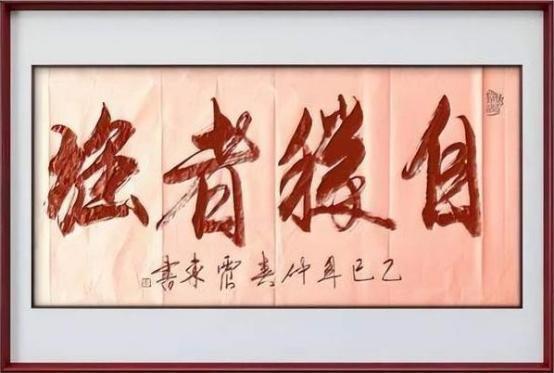 自勝者強
乙巳年仲春霄東書